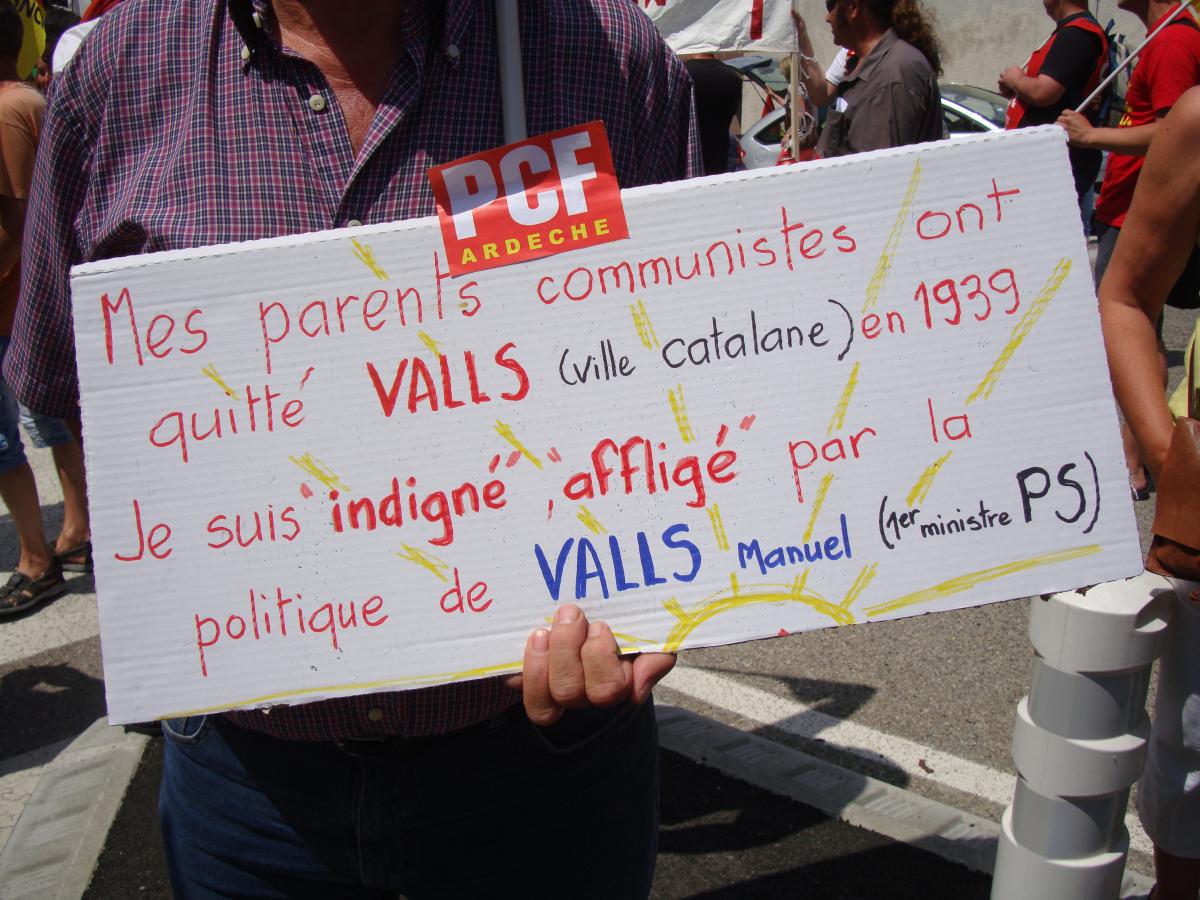 PCF
ARDECHE
Mes parents communistes ont
quitté VALLS (ville catalane) en 1939
Je suis "indigné", "affligé" par la
politique de VALLS Manuel (1er ministre PS)